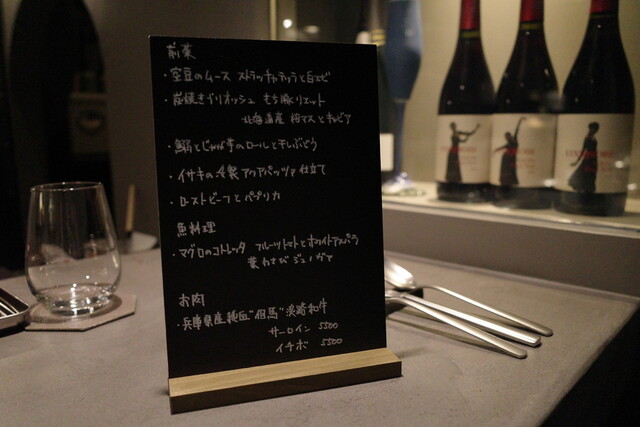 前菜
・空豆のムース ストラッチャテッラと白エビ
・炭焼きブリオッシュ もち豚リエット
北海道産 桜マスとキャビア
・鰯とじゃが芋のロールと干しぶどう
・イサキの燻製 アクアパッツァ仕立て
・ローストビーフとパプリカ
魚料理
・マグロのコトレッタ フルーツトマトとホワイトアスパラ
葉わさび ジェノヴァ
お肉
・兵庫県産純血"但馬" 淡路和牛
サーロイン 5500
イチボ 5500